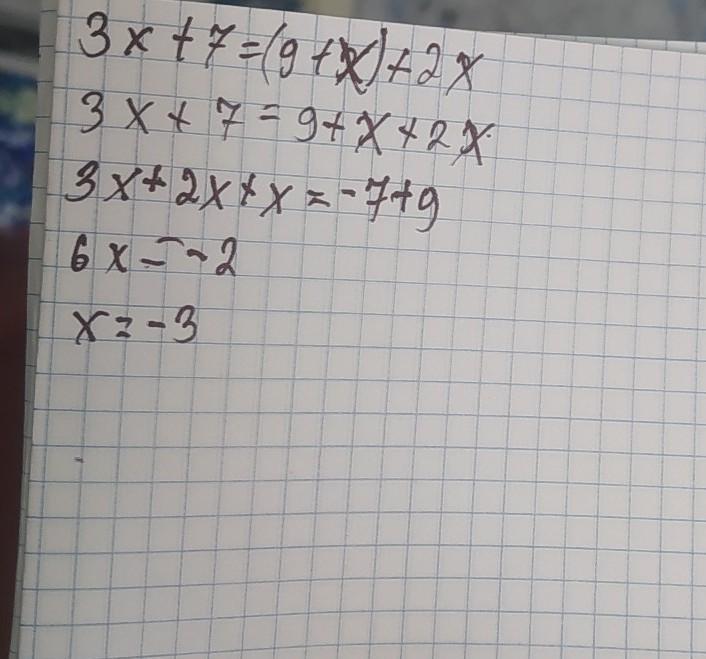 3x+7=(9+x)+2x
3x+7=9+x+2x
3x+2x+x=-7+9
6x=-2
x=-3